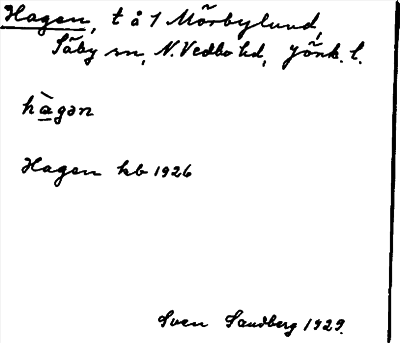 Hagen, t å 1 Mörbylund,
Säby sn, N. Vedbo hd, Jönk. l.
hàgən
Hagen hb 1926
Sven Sandberg 1929.